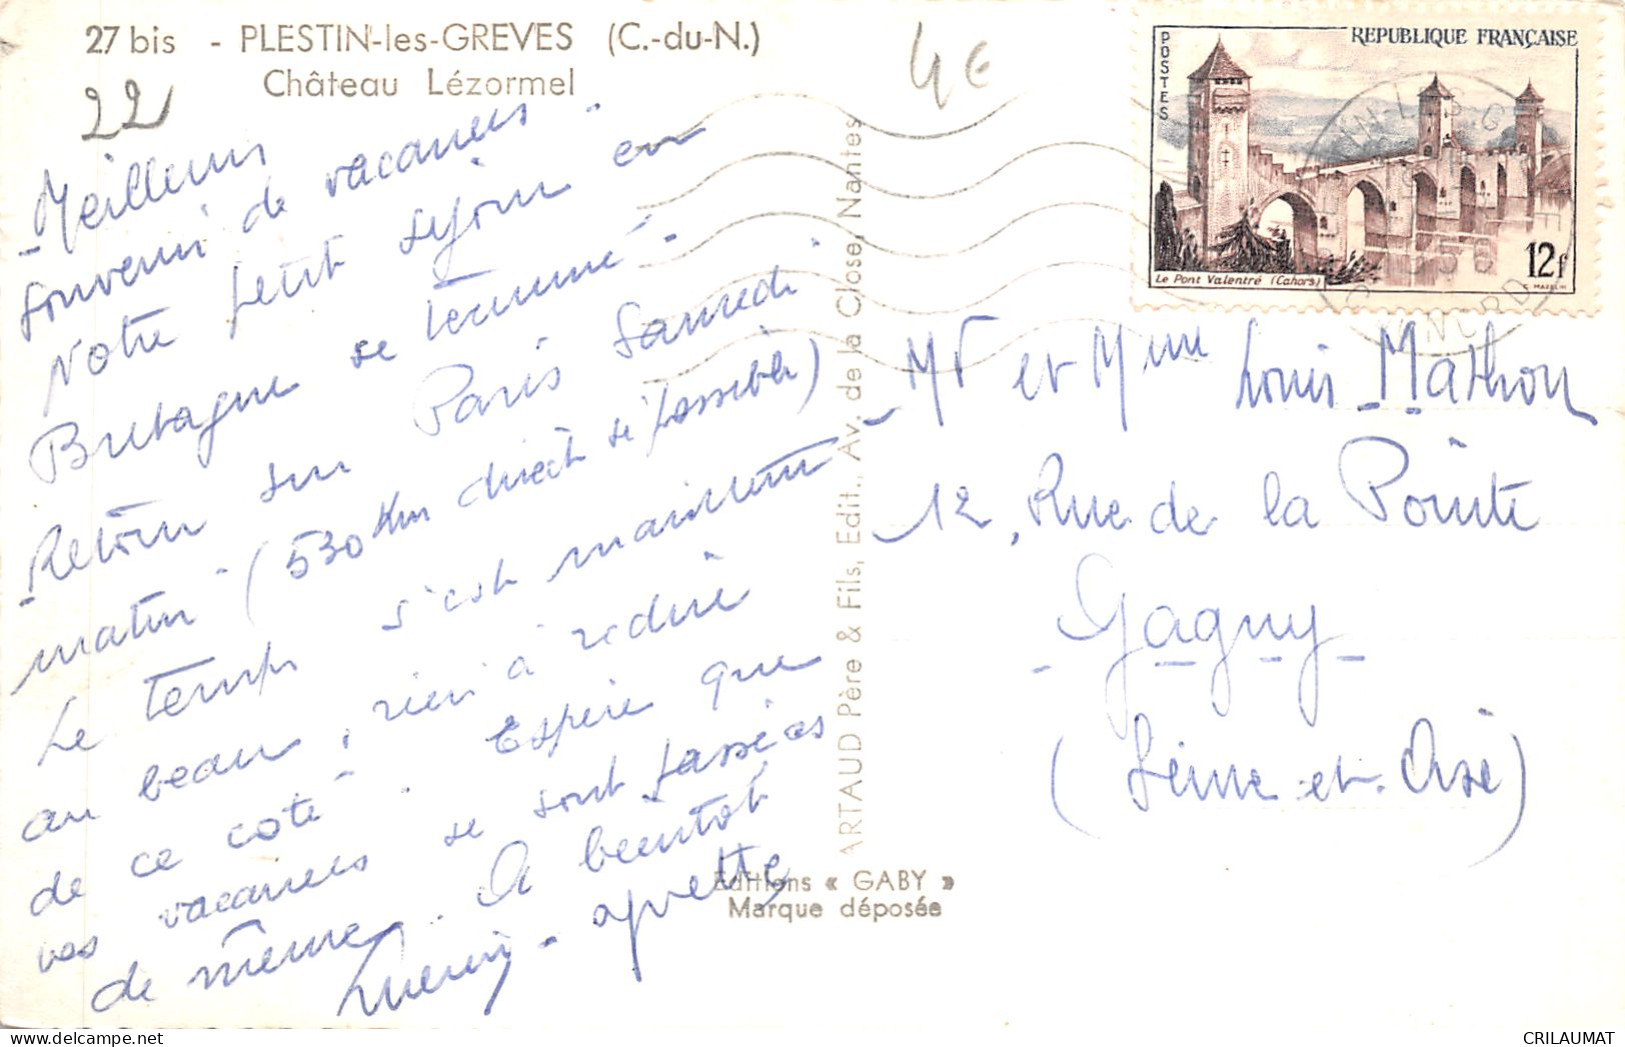 27 bis - PLESTIN-les-GREVES (C.-du-N.)
Château Lézormel
22
4€
Meilleurs
souvenir de vacances.
Notre petit séjour en
Bretagne se terminé.
Retour sur Paris Samedi
matin (530 Km direct si possible)
Le temps s'est maintenu
au beau, rien à redire
de ce coté. Espère que
vos vacances se sont passées
de même. A bientôt
ARTAUD Père & Fils, Edit., Av. de la Close, Nantes
Editions « GABY »
Marque déposée
POSTES
REPUBLIQUE FRANÇAISE
Le Pont Valentré (Cahors)
12f
C. MAZELIN
Mr et Mme Louis Mathon
12, Rue de la Pointe
Gagny
(Seine-et-Oise)
CRILAUMAT